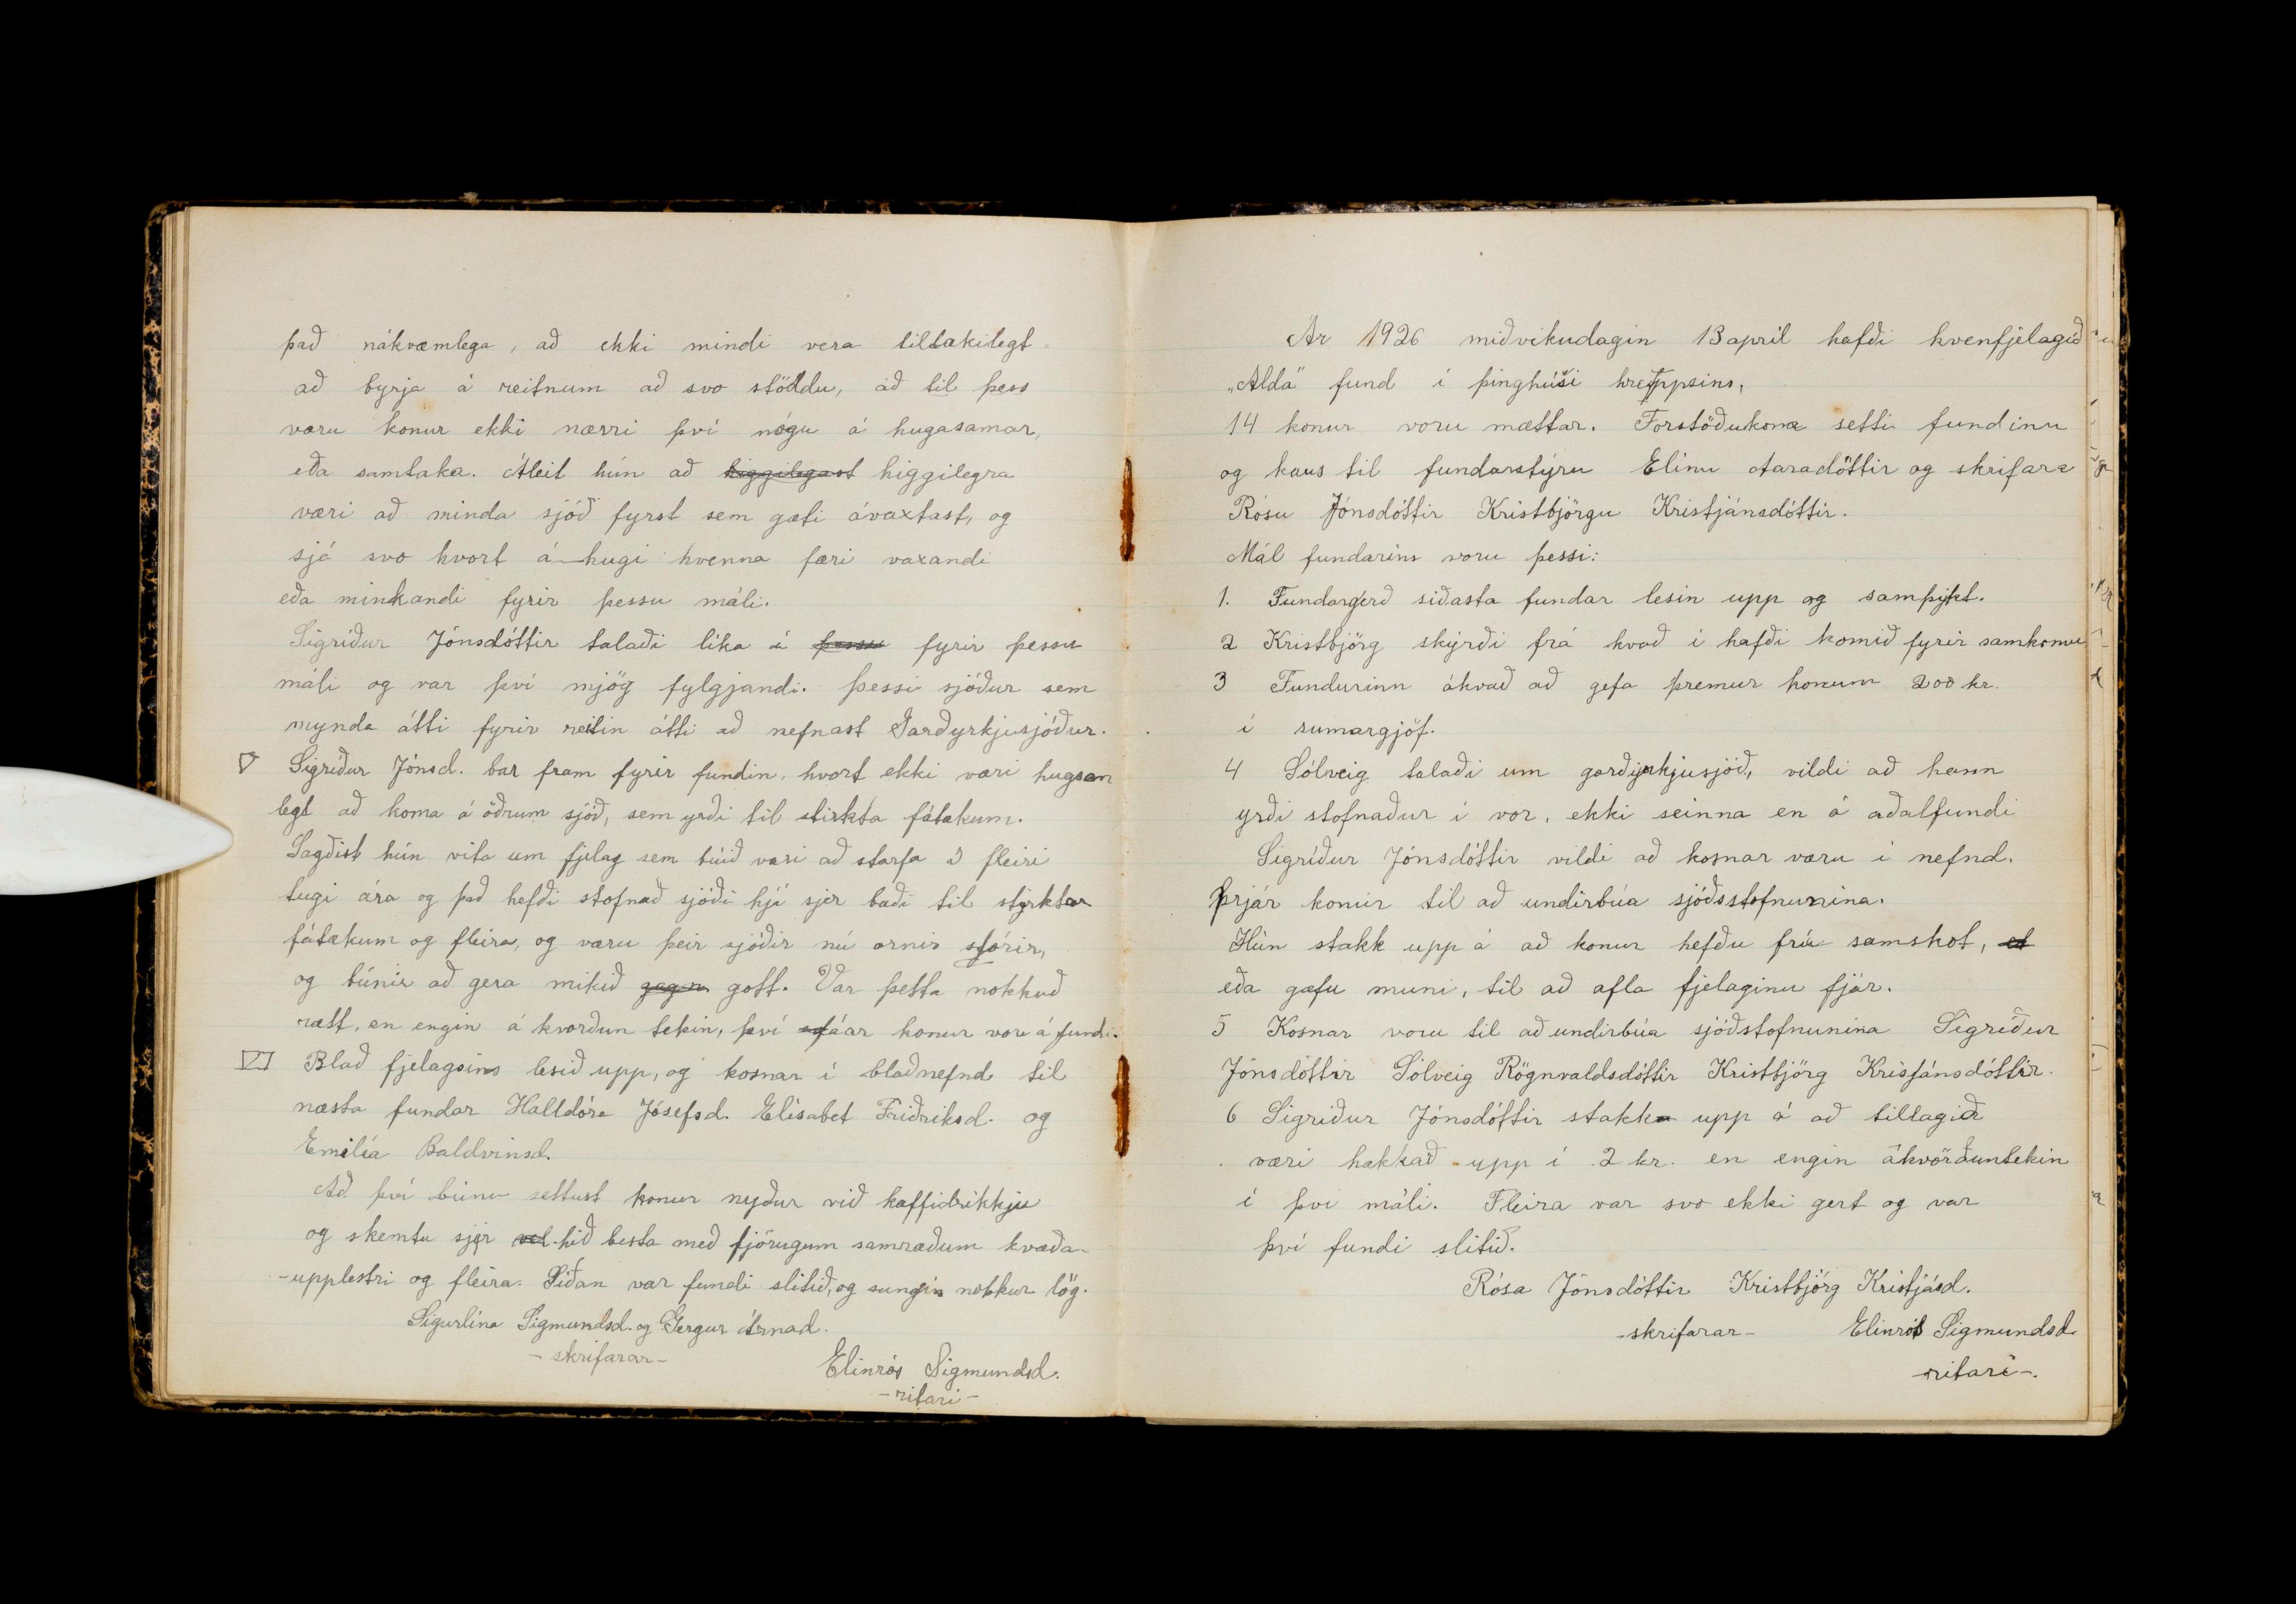 það nákvæmlega, að ekki mindi vera tiltækilegt
að byrja á reitnum að svo stöddu, að til þess
væru konur ekki nærri því nógu á hugasamar,
eða samtaka. Áleit hún að higgilegast higgilegra
væri að minda sjóð fyrst sem gæti ávaxtast, og
sjá svo hvort á-hugi hvenna færi vaxandi
eða minkandi fyrir þessu máli.
Sigríður Jónsdóttir talaði líka á þessu fyrir þessu
máli og var því mjög fylgjandi. Þessi sjóður sem
mynda átti fyrir reitin átti að nefnast Garðyrkjusjóður.
V Sigríður Jónsd. bar fram fyrir fundin, hvort ekki væri hugsan
legt að koma á öðrum sjóð, sem yrði til stirkta fátækum.
Sagðist hún vita um fjelag sem búið væri að starfa í fleiri
tugi ára og það hefði stofnað sjóði hjá sjer bæði til styrktar
fátækum og fleira, og væru þeir sjóðir nú ornir stórir,
og búnir að gera mikið gagn gott. Var þetta nokkuð
rætt, en engin á kvorðun tekin, því fáar konur vor á fundi.
VI Blað fjelagsins lesið upp, og kosnar í blaðnefnd til
næsta fundar Halldóra Jósefsd. Elísabet Friðriksd. og
Emilía Baldvinsd.
Að því búnu settust konur nyður við kaffidrikkju
og skemtu sjer vel hið besta með fjörugum samræðum kvæða-
-upplestri og fleira. Síðan var fundi slitið, og sungin nokkur lög.
Sigurlína Sigmundsd. og Gergur Árnad.
- skrifarar -
Elinrós Sigmundsd.
- ritari -
Ár 1926 miðvikudagin 13 apríl hafði kvenfjelagið
„Alda" fund í þinghúsi hreppsins,
14 konur voru mættar. Forstöðukona setti fundinn
og kaus til fundarstýru Elínu Aradóttir og skrifara
Rósu Jónsdóttir Kristbjörgu Kristjánsdóttir.
Mál fundarins voru þessi:
1. Fundargerð síðasta fundar lesin upp og samþykt.
2 Kristbjörg skýrði frá hvað í hafði komið fyrir samkomu
3 Fundurinn ákvað að gefa þremur konum 200 kr.
í sumargjöf.
4 Sólveig talaði um garðyrkjusjóð, vildi að hann
yrði stofnaður í vor, ekki seinna en á aðalfundi
Sigríður Jónsdóttir vildi að kosnar væru í nefnd.
þrjár konur til að undirbúa sjóðsstofnunina.
Hún stakk upp á að konur hefðu fría samskot, ed
eða gæfu muni, til að afla fjelaginu fjár.
5 Kosnar voru til að undirbúa sjóðstofnunina Sigríður
Jónsdóttir Sólveig Rögnvaldsdóttir Kristbjörg Krisjánsdóttir.
6 Sigríður Jónsdóttir stakk upp á að tillagið
væri hækkað upp í 2 kr. en engin ákvörðuntekin
í því máli. Fleira var svo ekki gert og var
því fundi slitið.
Rósa Jónsdóttir Kristbjörg Kristjásd.
- skrifarar - Elinrós Sigmundsd.
- ritari -.